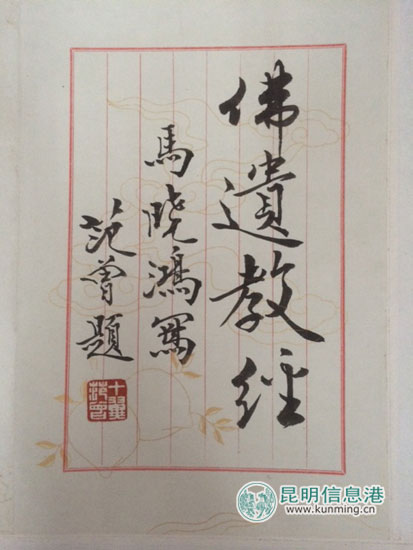 佛遺教經
馬曉鴻寫
范曾題
十翼
范曾
昆明信息港
www.kunming.cn